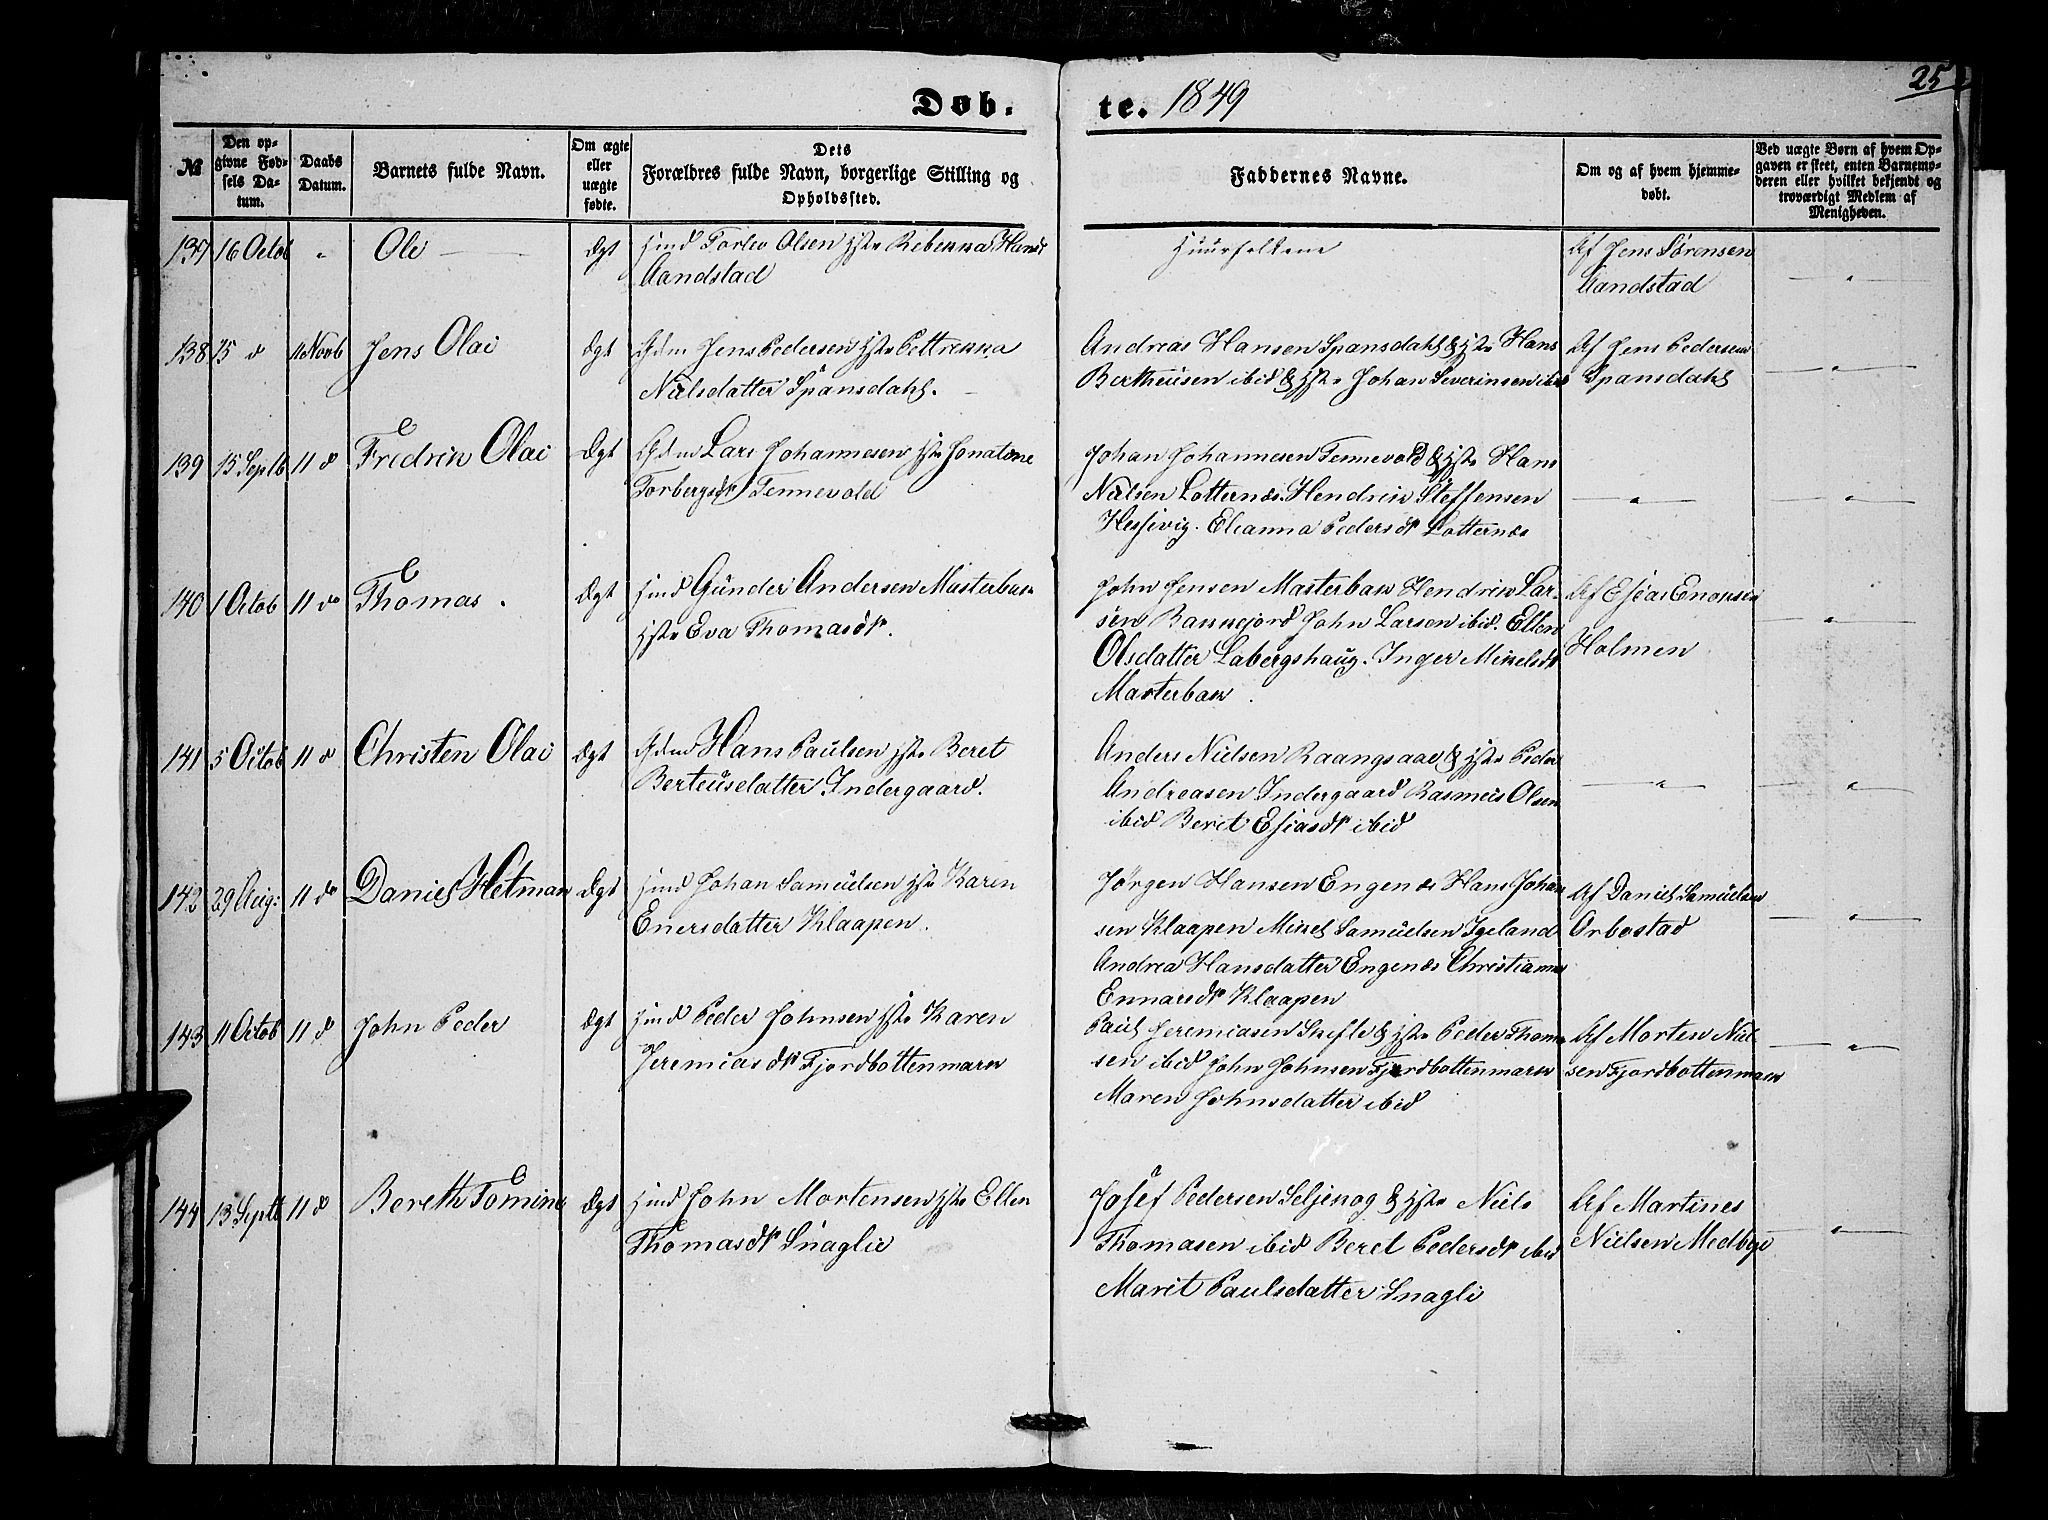 25
Døb. te. 1849
№
Den op-
givne Fød-
sels Da-
tum.
Daabs
Datum.
Barnets fulde Navn.
Om ægte
eller
uægte
fødte.
Dets
Forældres fulde Navn, borgerlige Stilling og
Opholdssted.
Faddernes Navne.
Om og af hvem hjemme-
døbt.
Ved uægte Børn af hvem Op-
gaven er skeet, enten Barnemo-
deren eller hvilket bekjendt og
troværdigt Medlem af
Menigheden.
137 16 Octob " Ole Ægt Hmd Torlev Olsen Hst Rebekka Hansd
Aandstad
Huusfolkene
Af Jens Sørensen
Aandstad
138 15 d 11 Novb Jens Olai Ægt Gdm Jens Pedersen Hst Pettrikka
Nielsdatter Spansdahl.
Andreas Hansen Spansdahl & Hst Hans
Bertheusen ibid & Hst Johan Severinsen ibid
Af Jens Pedersen
Spansdahl
139 15 Septb 11 d Fredrik Olai Ægt Gdm Lars Johannesen Hst Jonatone
Torbergsdr Tennevold
Johan Johannesen Tennevold & Hst Hans
Nielsen Lotternæs. Hendrik Steffensen
Hessivig. Elianna Pedersdr Lotternæs
140 1 Octob 11 do Thomas. Ægt Hmd Gunder Andersen Masterbak
Hst Eva Thomasdr.
John Jensen Masterbak Hendrik Lar-
sen Ravnfjord John Larsen ibid. Ellen
Olsdatter Labergshaug. Inger Mikelsdr
Masterbak.
Af Esias Enoksen
Holmen
141 5 Octob 11 d Christen Olai Ægt Gdm Hans Paulsen Hst Beret
Berteusdatter Indergaard.
Anders Nielsen Kaangsaae & Hst Peder
Andreasen Indergaard Rasmus Olsen
ibid Beret Esiasdr ibid
142 29 Aug: 11 do Daniel Hetman Ægt Hmd Johan Samuelsen Hst Karen
Enersdatter Klaapen.
Jørgen Hansen Engenæs Hans Johan
sen Klaapen Mikel Samuelsen Igeland
Andrea Hansdatter Engenæs Christianna
Ennarsdr Klaapen
Af Daniel Samuelsen
Orbostad
143 11 Octob 11 d John Peder Ægt Hmd Peder Johnsen Hst Karen
Jeremiasdr Fjordbottenmark
Paul Jeremiasen Skefle & Hst Peder Thoma
sen ibid John Johnsen Fjordbottenmark
Maren Johnsdatter ibid
Af Morten Niel
sen Fjordbottenmark
144 13 Septb 11 d Bereth Tomine Ægt Hmd John Mortensen Hst Ellen
Thomasdr Snaglie
Josef Pedersen Seljeskog & Hst Niels
Thomasen ibid Beret Pedersdr ibid
Marit Paulsdatter Snagli
Af Martines
Nielsen Medbye